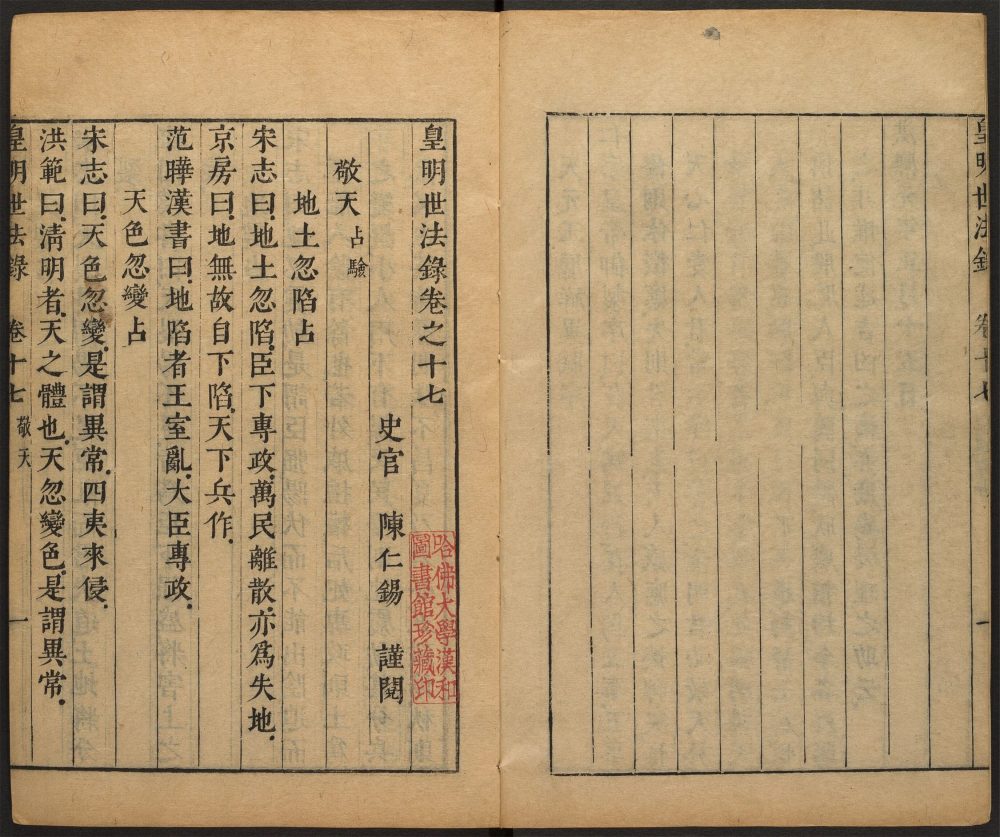 皇明世法錄
卷十七
一
皇明世法錄卷之十七
史官 陳仁錫 謹閱
敬天 占驗
地土忽陷占
宋志曰.地土忽陷.臣下專政.萬民離散.亦爲失地.
京房曰.地無故自下陷.天下兵作.
范曄漢書曰.地陷者王室亂.大臣專政.
天色忽變占
宋志曰.天色忽變.是謂異常.四夷來侵.
洪範曰.淸明者.天之體也.天忽變色.是謂異常.
皇明世法錄 卷十七 敬天 一
哈佛大學漢和
圖書館珍藏印